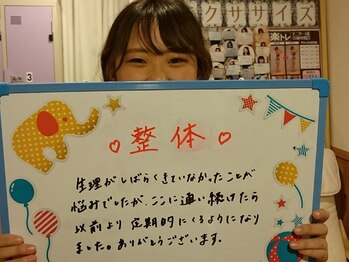 クササイズ
楽トレ
3
♡整体♡
生理がしばらくきていなかったことが
悩みでしたが、ここに通い続けたら
以前より定期的にくるようになり
ました。ありがとうございます。